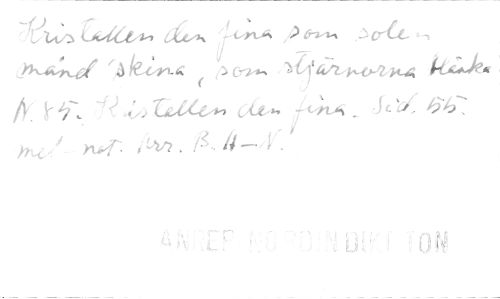 Kristallen den fina som solen
månd skina, som stjärnorna blänka
N. 85. Kristallen den fina. Sid. 55.
mel-not. Arr. B. H-N.
NORDIN DIKT TON